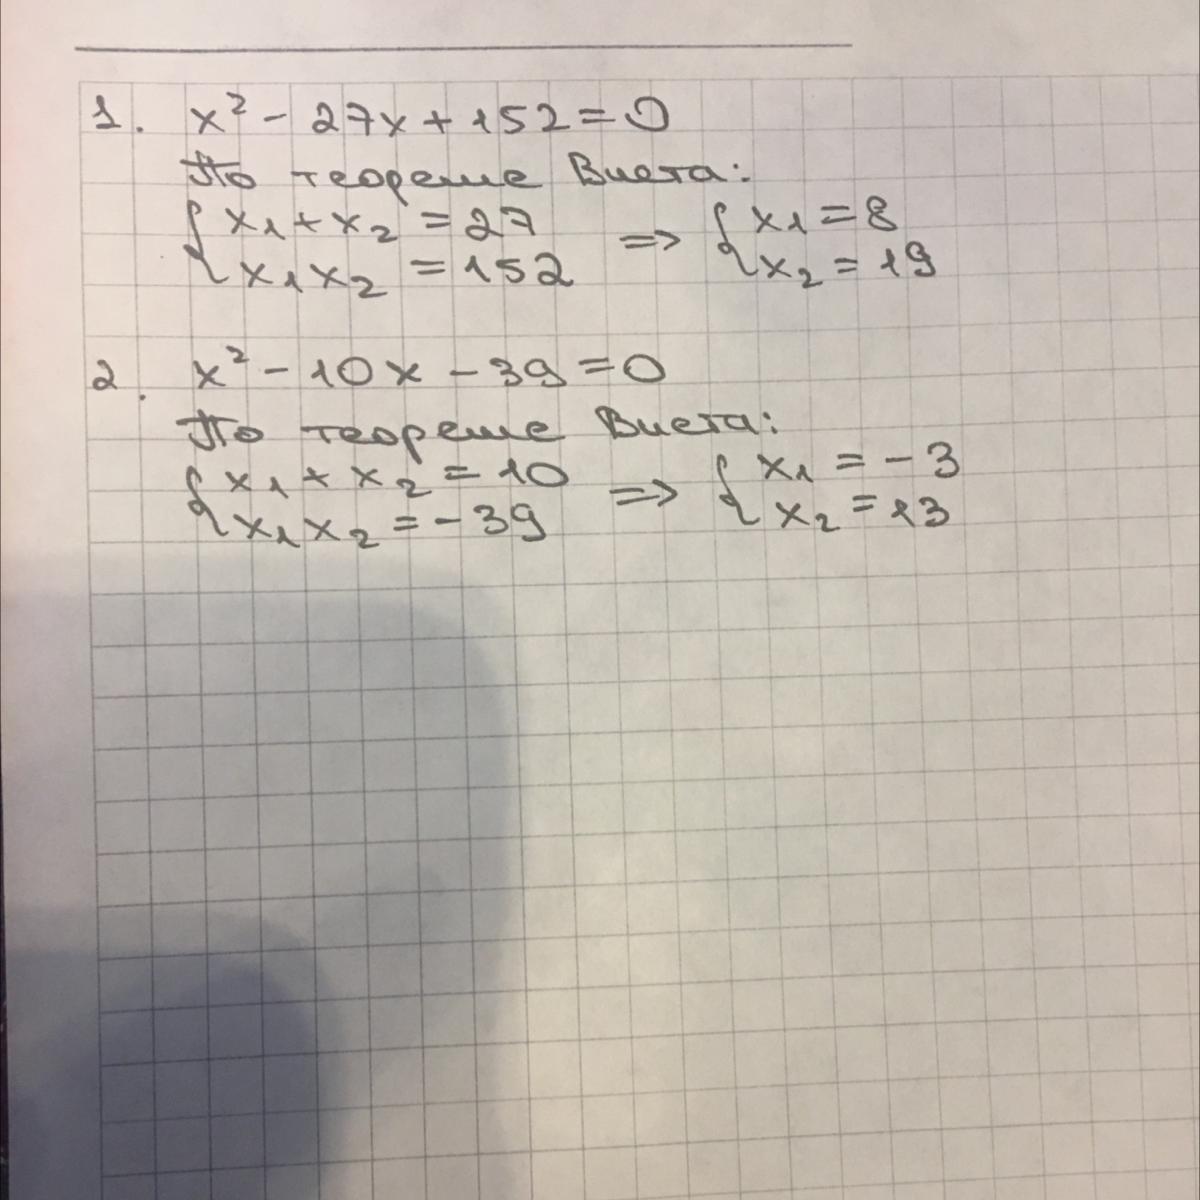 1. x² - 27x + 152 = 0
По теореме Виета:
{ x₁ + x₂ = 27 => { x₁ = 8
{ x₁x₂ = 152 { x₂ = 19
2. x² - 10x - 39 = 0
По теореме Виета:
{ x₁ + x₂ = 10 => { x₁ = -3
{ x₁x₂ = -39 { x₂ = 13